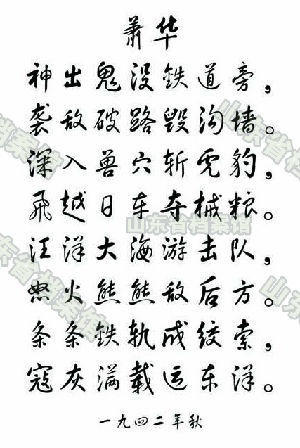 萧华
神出鬼没铁道旁，
袭敌破路毁沟墙。
深入兽穴斩虎豹，
飞越日车夺械粮。
汪洋大海游击队，
怒火熊熊敌后方。
条条铁轨成绞索，
寇灰满载运东洋。
一九四二年秋
山东省档案馆
山东省档案馆
山东省档案馆
山东省档案馆